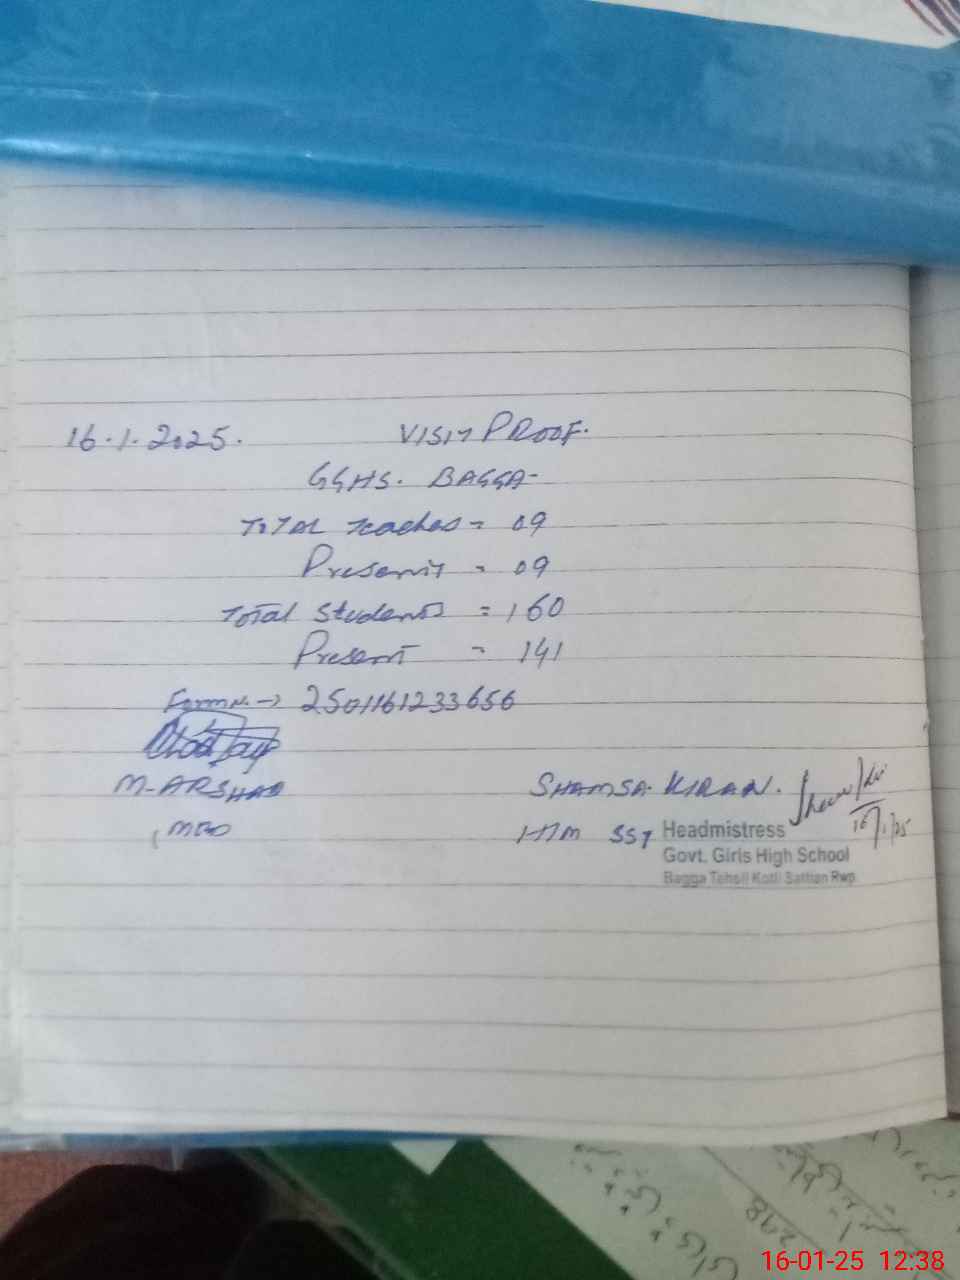 16.1.2025. VISIT PROOF.
GGHS. BAGGA-
Total Teaches = 09
Present = 09
Total Students = 160
Present = 141
Form N. → 2501161233656
M-ARSHAD
SHAMSA KIRAN.
16/1/25
HM SST
Headmistress
Govt. Girls High School
Bagga Tehsil Kotli Sattian Rwp
16-01-25 12:38